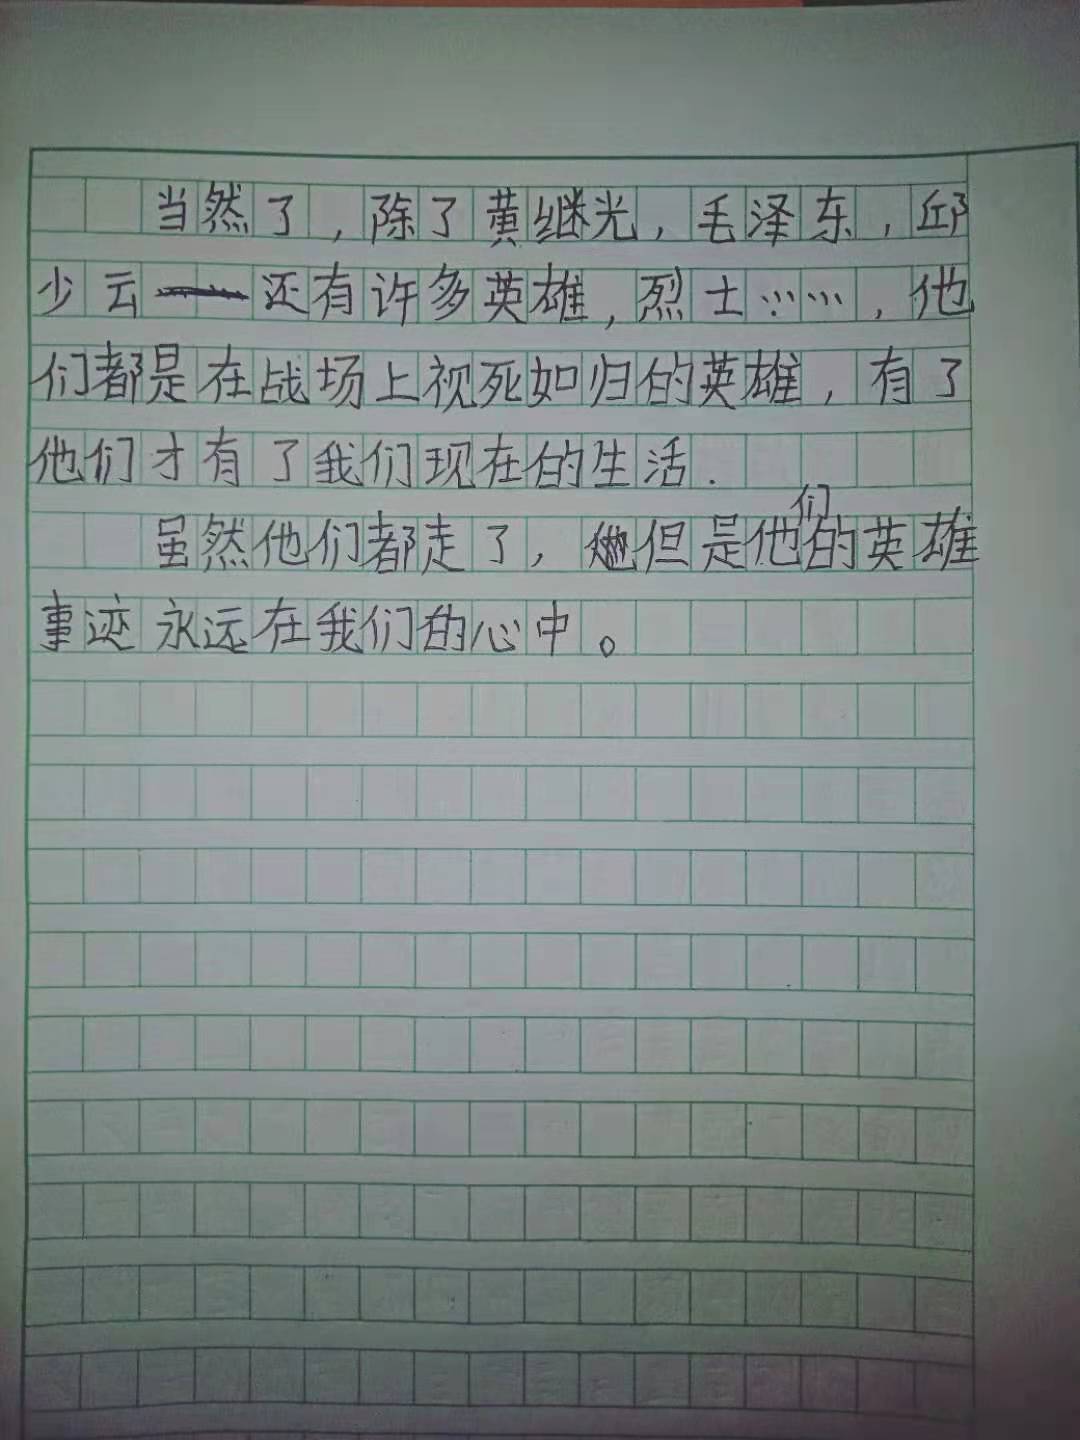 当然了，除了黄继光，毛泽东，邱
少云还有许多英雄，烈士……，他
们都是在战场上视死如归的英雄，有了
他们才有了我们现在的生活.
虽然他们都走了，但是他们的英雄
事迹永远在我们的心中。